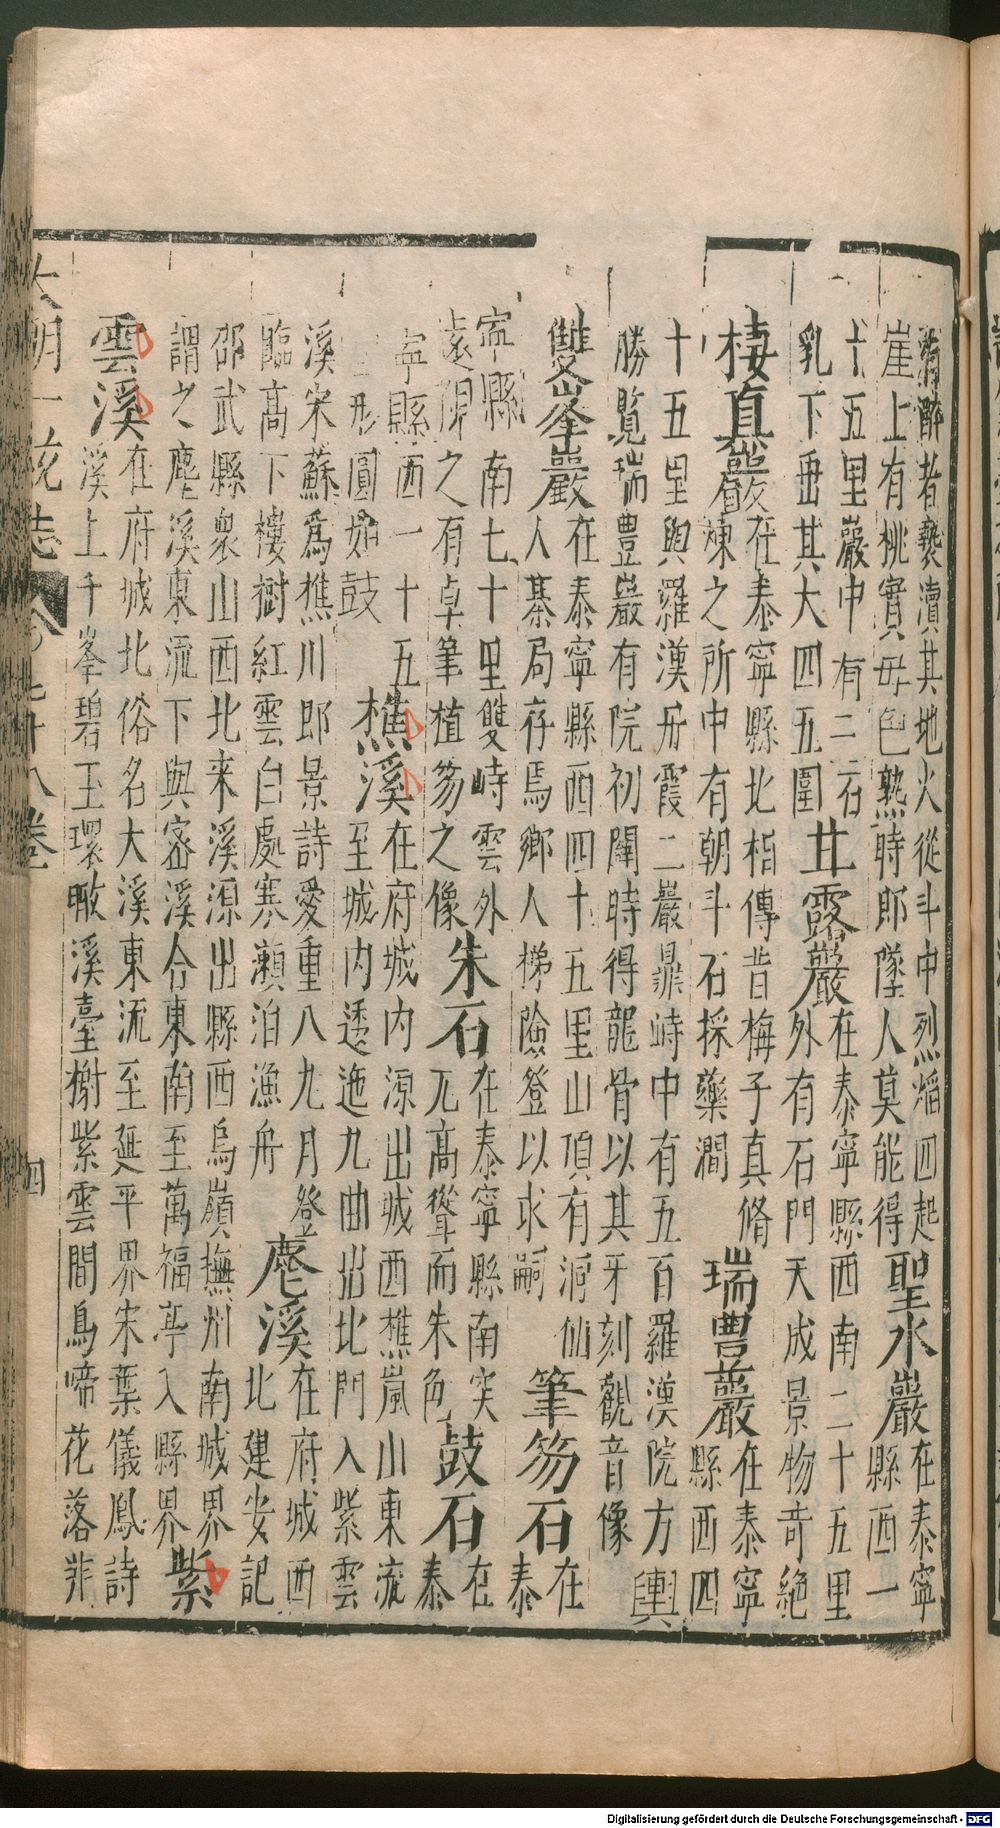 有酒醉者褻瀆其地火從斗中烈熖四起
崖上有桃實毋色熟時郎墜人莫能得聖水巖在泰寧縣西一
十五里巖中有二石
乳下垂其大四五圍甘露巖在泰寧縣西南二十五里
外有石門天成景物奇絶
棲真巖在泰寧縣北相傳昔梅子真脩
煉之所中有朝斗石採藥澗瑞豊巖在泰寧縣西四
十五里與羅漢丹霞二巖鼎峙中有五百羅漢院方輿
勝覧瑞豊巖有院初闢時得龍骨以其牙刻觀音像
雙峯巖在泰寧縣西四十五里山頂有洞仙
人棊局存焉鄉人梯險登以求嗣筆笏石在泰
寧縣南七十里雙峙雲外
遠視之有卓筆植笏之像朱石在泰寧縣南突
兀髙聳而朱色鼓石在泰
寧縣西一十五
里形圓如鼓樵溪在府城内源出城西樵嵐山東流
至城内透迤九曲出北門入紫雲
溪宋蘇為樵川郎景詩愛重八九月登
臨髙下樓樹紅雲白處寒瀬泊漁舟麾溪在府城西
北建安記
邵武縣衆山西北来溪源出縣西烏嶺撫州南城界
謂之麾溪東流下與宻溪合東南至萬福亭入縣界紫
雲溪在府城北俗名大溪東流至延平界宋葉儀鳳詩
溪上千峯碧玉環瞰溪臺榭紫雲間鳥啼花落非
大明一統志 卷之七十八卷 四
Digitalisierung gefördert durch die Deutsche Forschungsgemeinschaft - DFG